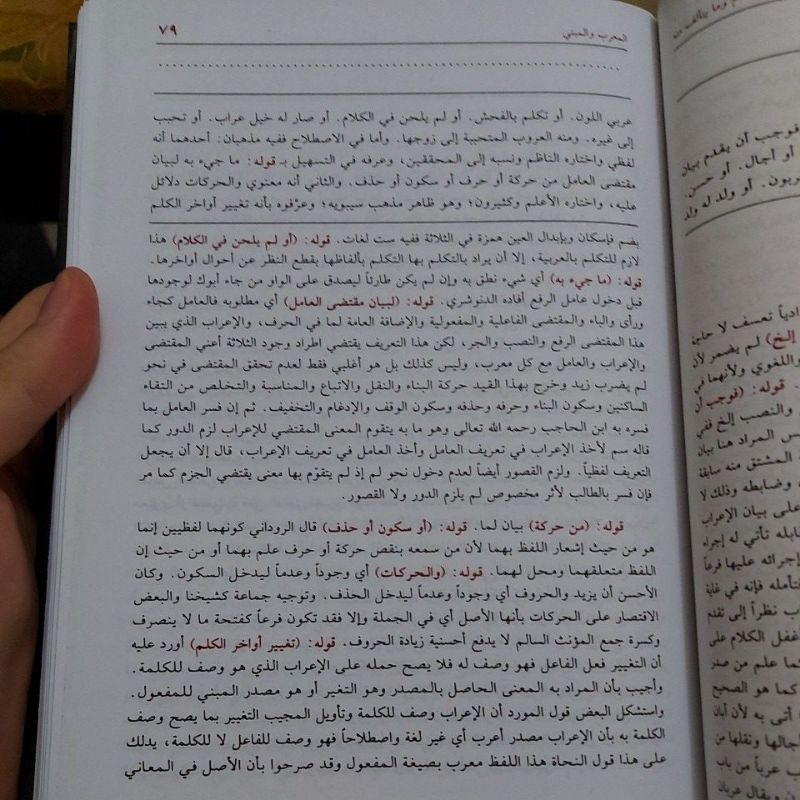 المعرب والمبني
٧٩
عربي اللون. أو تكلم بالفحش. أو لم يلحن في الكلام. أو صار له خيل عراب. أو تحبب
إلى غيره. ومنه العروب المتحببة إلى زوجها. وأما في الاصطلاح ففيه مذهبان: أحدهما أنه
لفظي واختاره الناظم ونسبه إلى المحققين، وعرفه في التسهيل بـ قوله: ما جيء به لبيان
مقتضى العامل من حركة أو حرف أو سكون أو حذف. والثاني أنه معنوي والحركات دلائل
عليه، واختاره الأعلم وكثيرون؛ وهو ظاهر مذهب سيبويه؛ وعرّفوه بأنه تغيير أواخر الكلم
بضم فإسكان وبإبدال العين همزة في الثلاثة ففيه ست لغات. قوله: (أو لم يلحن في الكلام) هذا
لازم للتكلم بالعربية، إلا أن يراد بالتكلم بها التكلم بألفاظها بقطع النظر عن أحوال أواخرها.
قوله: (ما جيء به) أي شيء نطق به وإن لم يكن طارئاً ليصدق على الواو من جاء أبوك لوجودها
قبل دخول عامل الرفع أفاده الدنوشري. قوله: (لبيان مقتضى العامل) أي مطلوبه فالعامل كجاء
ورأى والباء والمقتضى الفاعلية والمفعولية والإضافة العامة لما في الحرف، والإعراب الذي يبين
هذا المقتضى الرفع والنصب والجر، لكن هذا التعريف يقتضي اطراد وجود الثلاثة أعني المقتضى
والإعراب والعامل مع كل معرب، وليس كذلك بل هو أغلبي فقط لعدم تحقق المقتضى في نحو
لم يضرب زيد وخرج بهذا القيد حركة البناء والنقل والاتباع والمناسبة والتخلص من التقاء
الساكنين وسكون البناء وحرفه وحذفه وسكون الوقف والإدغام والتخفيف. ثم إن فسر العامل بما
فسره به ابن الحاجب رحمه الله تعالى وهو ما به يتقوم المعنى المقتضي للإعراب لزم الدور كما
قاله سم لأخذ الإعراب في تعريف العامل وأخذ العامل في تعريف الإعراب، قال إلا أن يجعل
التعريف لفظياً. ولزم القصور أيضاً لعدم دخول نحو لم إذ لم يتقوّم بها معنى يقتضي الجزم كما مر
فإن فسر بالطالب لأثر مخصوص لم يلزم الدور ولا القصور.
قوله: (من حركة) بيان لما. قوله: (أو سكون أو حذف) قال الروداني كونهما لفظيين إنما
هو من حيث إشعار اللفظ بهما لأن من سمعه بنقص حركة أو حرف علم بهما أو من حيث إن
اللفظ متعلقهما ومحل لهما. قوله: (والحركات) أي وجوداً وعدماً ليدخل السكون. وكان
الأحسن أن يزيد والحروف أي وجوداً وعدماً ليدخل الحذف. وتوجيه جماعة كشيخنا والبعض
الاقتصار على الحركات بأنها الأصل أي في الجملة وإلا فقد تكون فرعاً كفتحة ما لا ينصرف
وكسرة جمع المؤنث السالم لا يدفع أحسنية زيادة الحروف. قوله: (تغيير أواخر الكلم) أورد عليه
أن التغيير فعل الفاعل فهو وصف له فلا يصح حمله على الإعراب الذي هو وصف للكلمة.
وأجيب بأن المراد به المعنى الحاصل بالمصدر وهو التغير أو هو مصدر المبني للمفعول.
واستشكل البعض قول المورد أن الإعراب وصف للكلمة وتأويل المجيب التغيير بما يصح وصف
الكلمة به بأن الإعراب مصدر أعرب أي غير لغة واصطلاحاً فهو وصف للفاعل لا للكلمة، يدلك
على هذا قول النحاة هذا اللفظ معرب بصيغة المفعول وقد صرحوا بأن الأصل في المعاني